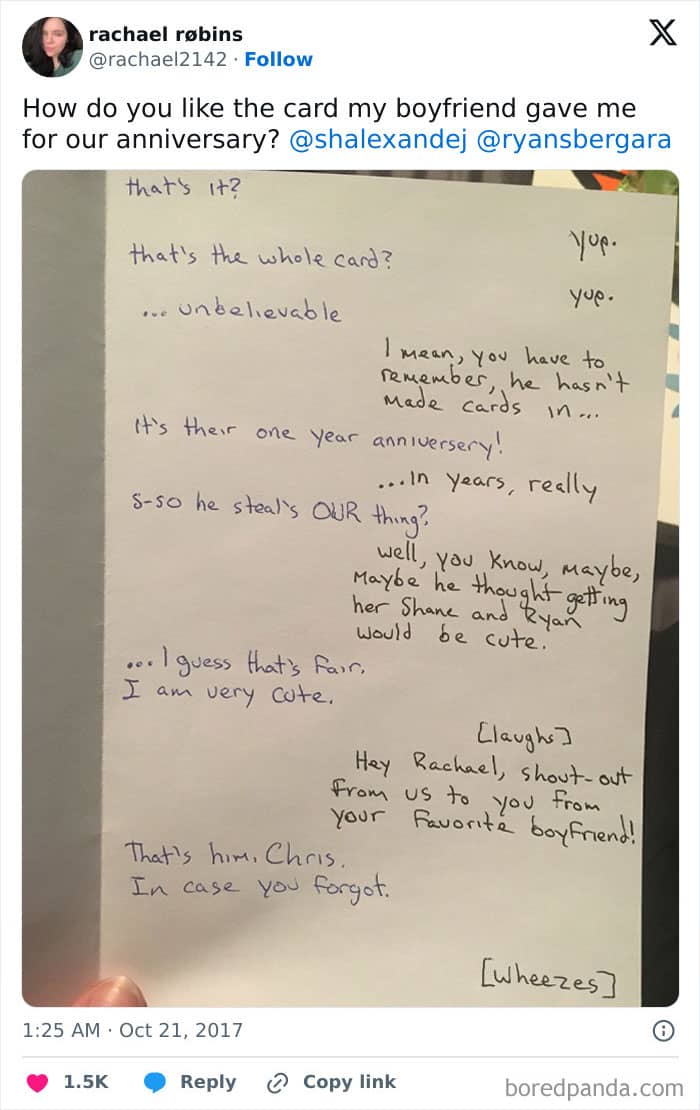 rachael røbins
@rachael2142 · Follow
How do you like the card my boyfriend gave me
for our anniversary? @shalexandej @ryansbergara
that's it?
Yup.
that's the whole card?
yup.
... unbelievable
I mean, you have to
remember, he hasn't
made cards in...
It's their one year anniversery!
...In years, really
S-so he steal's OUR thing?
Well, you know, maybe,
Maybe he thought getting
her Shane and Ryan
would be cute.
... I guess that's fair.
I am very cute.
[laughs]
Hey Rachael, shout-out
from us to you from
your favorite boyfriend!
That's him, Chris.
In case you forgot.
[wheezes]
1:25 AM · Oct 21, 2017
1.5K Reply Copy link
boredpanda.com